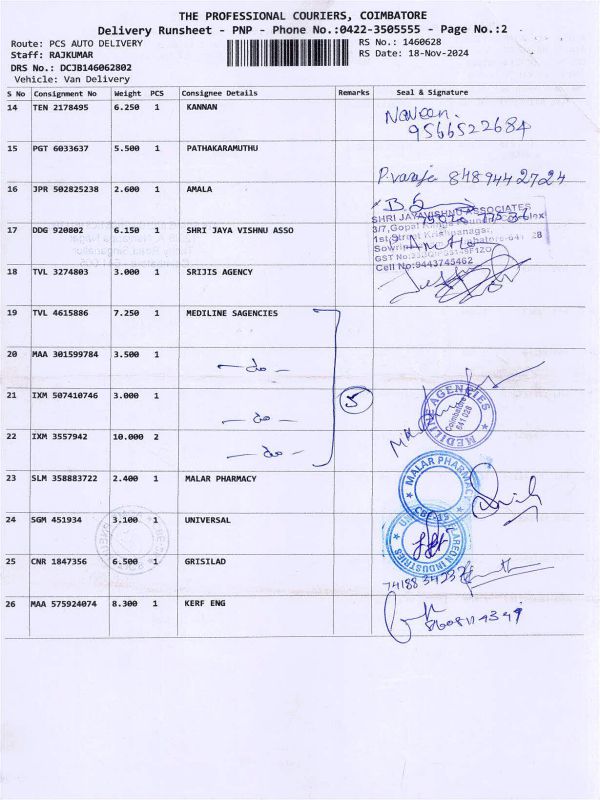 THE PROFESSIONAL COURIERS, COIMBATORE
Delivery Runsheet - PNP - Phone No.:0422-3505555 - Page No.:2
Route: PCS AUTO DELIVERY
RS No.: 1460628
Staff: RAJKUMAR
RS Date: 18-Nov-2024
DRS No.: DCJB146062802
Vehicle: Van Delivery
S No Consignment No Weight PCS Consignee Details Remarks Seal & Signature
14 TEN 2178495 6.250 1 KANNAN
Naveen.
9566522684
15 PGT 6033637 5.500 1 PATHAKARAMUTHU
8489442724
16 JPR 502825238 2.600 1 AMALA
17 DDG 920802 6.150 1 SHRI JAYA VISHNU ASSO
SHRI JAYAVISHNU ASSOCIATES
3/7,Gopal
1st Street Krishnanagar,
Cell No:9443745462
18 TVL 3274803 3.000 1 SRIJIS AGENCY
19 TVL 4615886 7.250 1 MEDILINE SAGENCIES
20 MAA 301599784 3.500 1
-do-
21 IXM 507410746 3.000 1
-do-
5
MEDILINE AGENCIES
Coimbatore
641 028
22 IXM 3557942 10.000 2
-do-
23 SLM 358883722 2.400 1 MALAR PHARMACY
MALAR PHARMACY
CBE-15
24 SGM 451934 3.100 1 UNIVERSAL
25 CNR 1847356 6.500 1 GRISILAD
26 MAA 575924074 8.300 1 KERF ENG